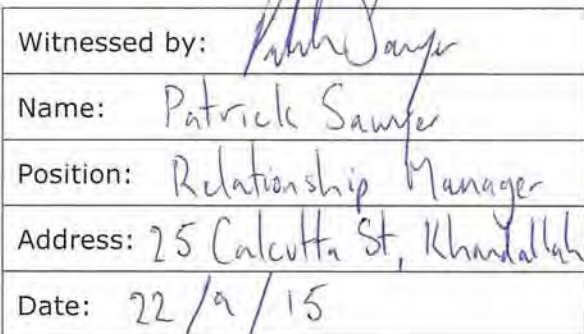 Witnessed by: Patrick Sawyer
Name: Patrick Sawyer
Position: Relationship Manager
Address: 25 Calcutta St, Khandallah
Date: 22/9/15